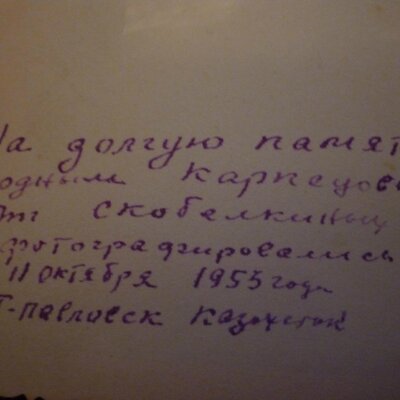 На долгую памят
одным Карпецов
от Скобелкины
фотографировались
11 октября 1955 года
Г-Павловск Казахстан